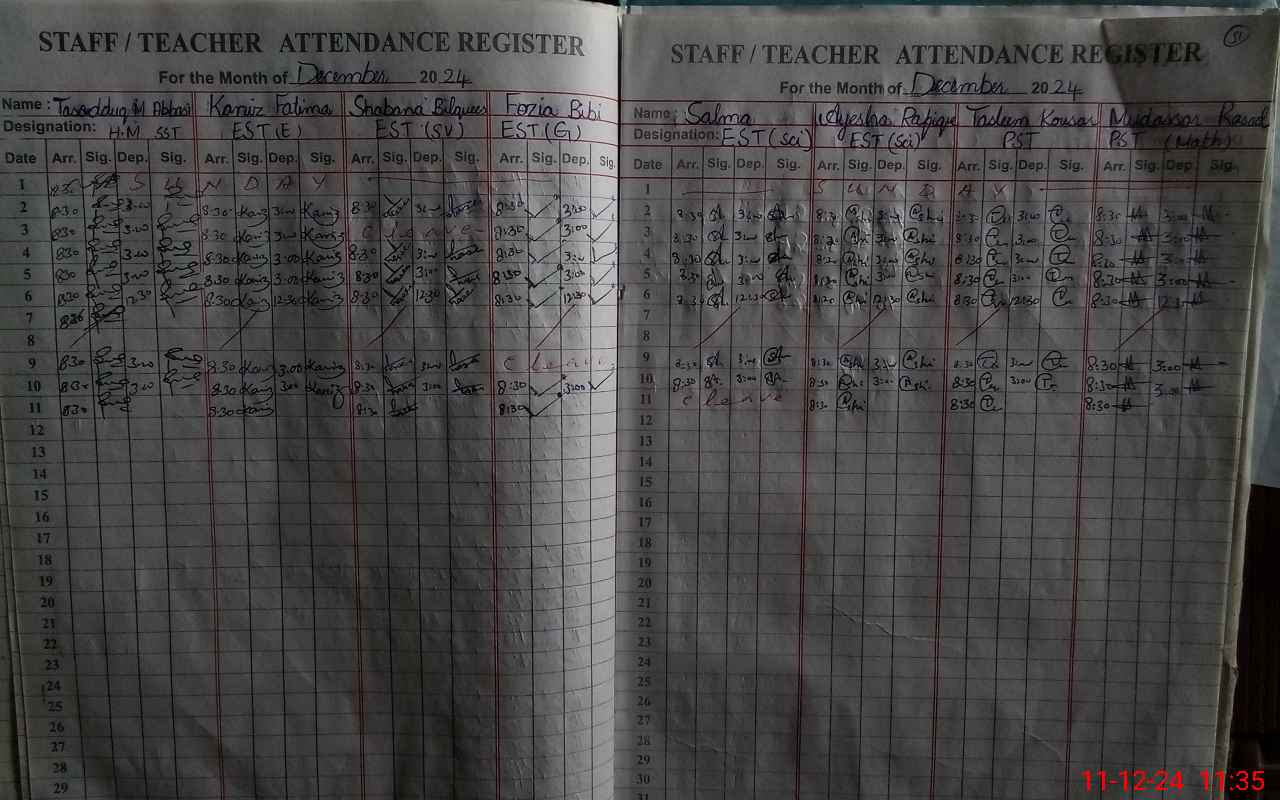 STAFF / TEACHER ATTENDANCE REGISTER
For the Month of December 2024
Name : Tasadduq M Abbasi Kaniz Fatima Shabana Bilquees Fozia Bibi
Designation: H.M SST EST (E) EST (SV) EST (G)
Date Arr. Sig. Dep. Sig. Arr. Sig. Dep. Sig. Arr. Sig. Dep. Sig. Arr. Sig. Dep. Sig.
1 S U N D A Y
2 8:30 3:00 8:30 Kaniz 3:00 Kaniz 8:30 3:00 8:30 3:00
3 8:30 3:00 8:30 Kaniz 3:00 Kaniz C leave 8:30 3:00
4 8:30 3:00 8:30 Kaniz 3:00 Kaniz 8:30 3:00 8:30 3:00
5 8:30 3:00 8:30 Kaniz 3:00 Kaniz 8:30 3:00 8:30 3:00
6 8:30 12:30 8:30 Kaniz 12:30 Kaniz 8:30 12:30 8:30 12:30
7 8:30
8
9 8:30 3:00 8:30 Kaniz 3:00 Kaniz 8:30 3:00 C leave
10 8:30 3:00 8:30 Kaniz 3:00 Kaniz 8:30 3:00 8:30 3:00
11 8:30 8:30 Kaniz 8:30 8:30
12
13
14
15
16
17
18
19
20
21
22
23
24
25
26
27
28
29
51
STAFF / TEACHER ATTENDANCE REGISTER
For the Month of December 2024
Name : Salma Ayesha Rafique Tasleem Kousar Mudassar Rasod
Designation: EST (Sci) EST (Sci) PST PST (Math)
Date Arr. Sig. Dep. Sig. Arr. Sig. Dep. Sig. Arr. Sig. Dep. Sig. Arr. Sig. Dep. Sig.
1 S U N D A Y
2 8:30 3:00 8:30 3:00 8:30 3:00 8:30 3:00
3 8:30 3:00 8:30 3:00 8:30 3:00 8:30 3:00
4 8:30 3:00 8:30 3:00 8:30 3:00 8:30 3:00
5 8:30 3:00 8:30 3:00 8:30 3:00 8:30 3:00
6 8:30 12:30 8:30 12:30 8:30 12:30 8:30 12:30
7
8
9 8:30 3:00 8:30 3:00 8:30 3:00 8:30 3:00
10 8:30 3:00 8:30 3:00 8:30 3:00 8:30 3:00
11 C leave 8:30 8:30 8:30
12
13
14
15
16
17
18
19
20
21
22
23
24
25
26
27
28
29
30
31
11-12-24 11:35